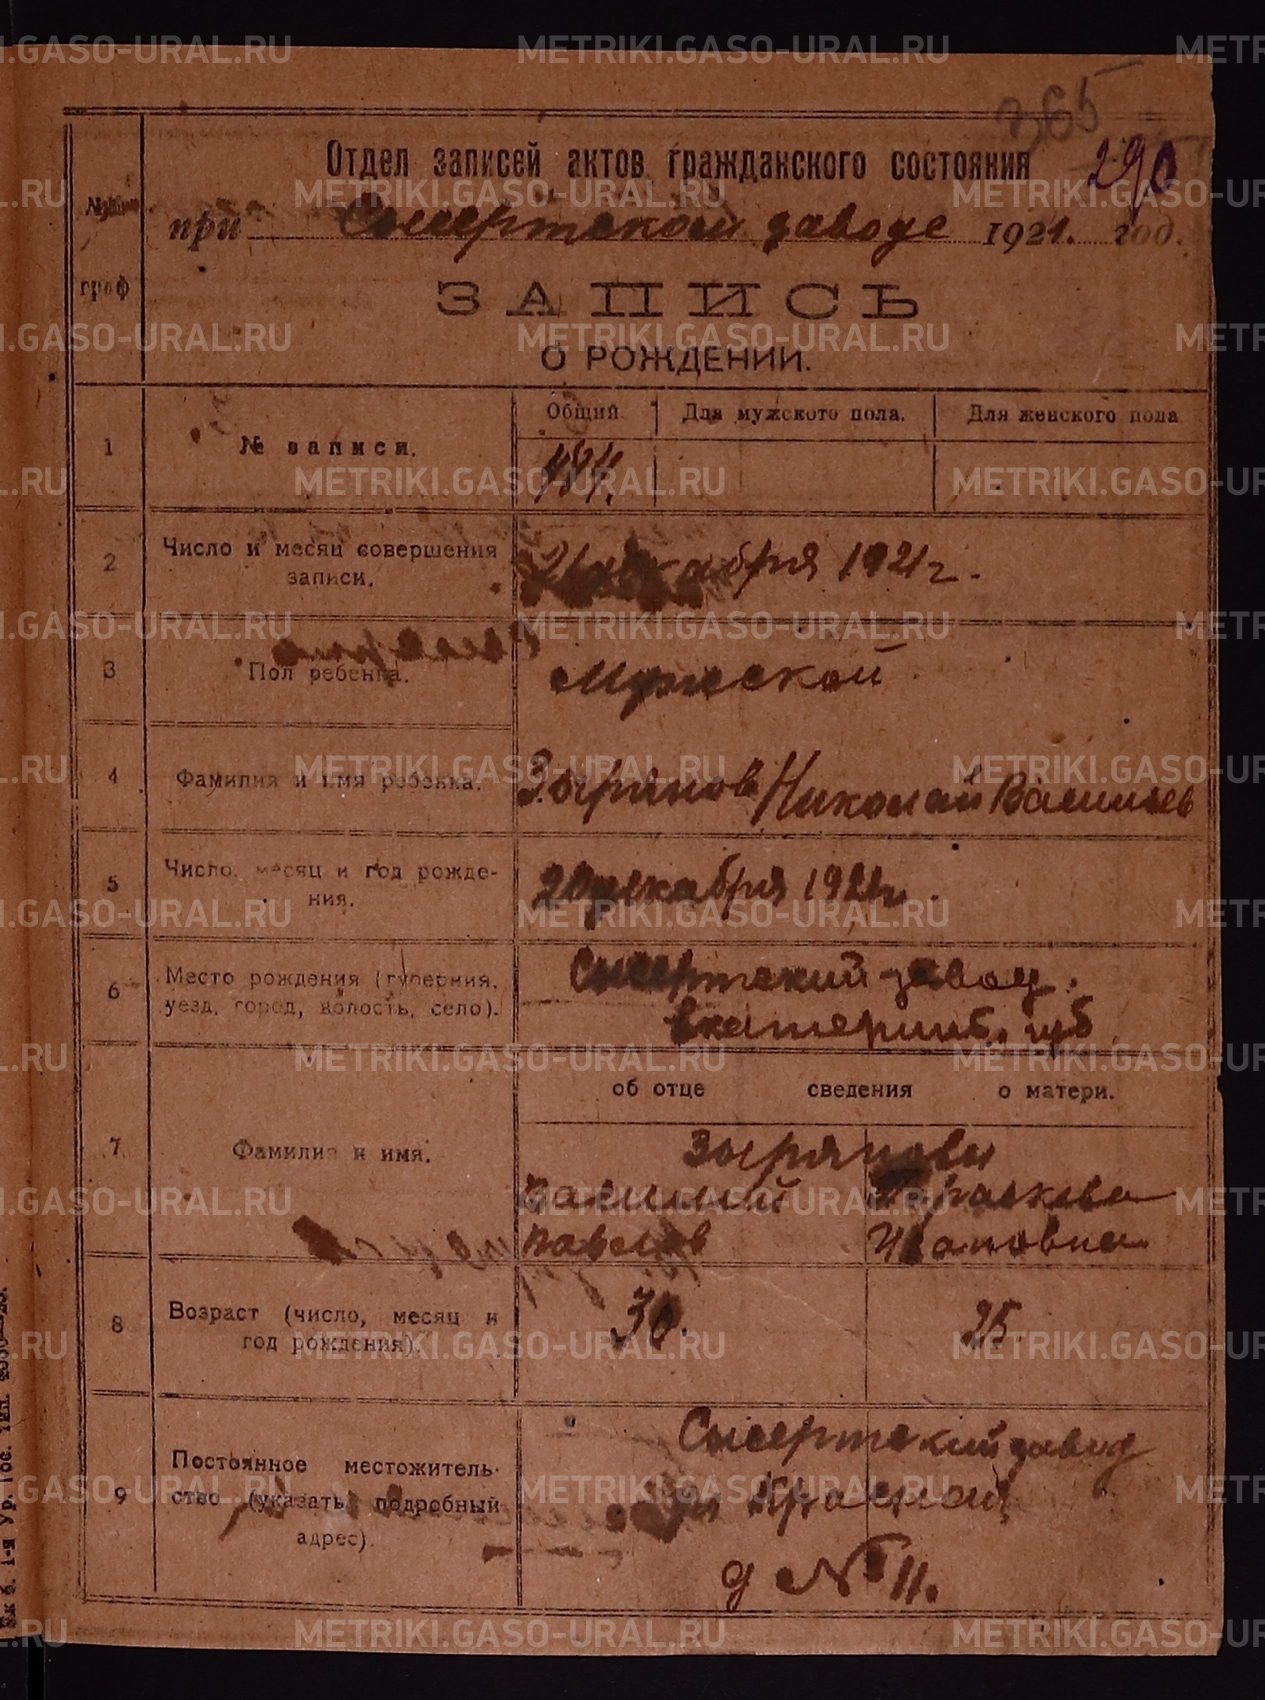 365
Отдел записей актов гражданского состояния 290
при Сысертском заводе 1921. год.
граф
ЗАПИСЬ
О РОЖДЕНИИ.
Общий Для мужского пола. Для женского пола
1 № записи. 494.
2 Число и месяц совершения
записи.
21 декабря 1921 г.
3 Пол ребенка. Мужской
4 Фамилия и имя ребенка. Зырянов Николай Васильев
5 Число, месяц и год рожде-
ния.
20 декабря 1921 г.
6 Место рождения (губерния,
уезд, город, волость, село).
Сысертский завод.
Екатеринб. губ
об отце сведения о матери.
7 Фамилия и имя.
Зыряновы
Василий Парасковья
Павлов Ивановна
8 Возраст (число, месяц и
год рождения).
30. 25
9 Постоянное местожитель-
ство (указать подробный
адрес).
Сысертский завод
ул Красной
д № 11.
METRIKI.GASO-URAL.RU